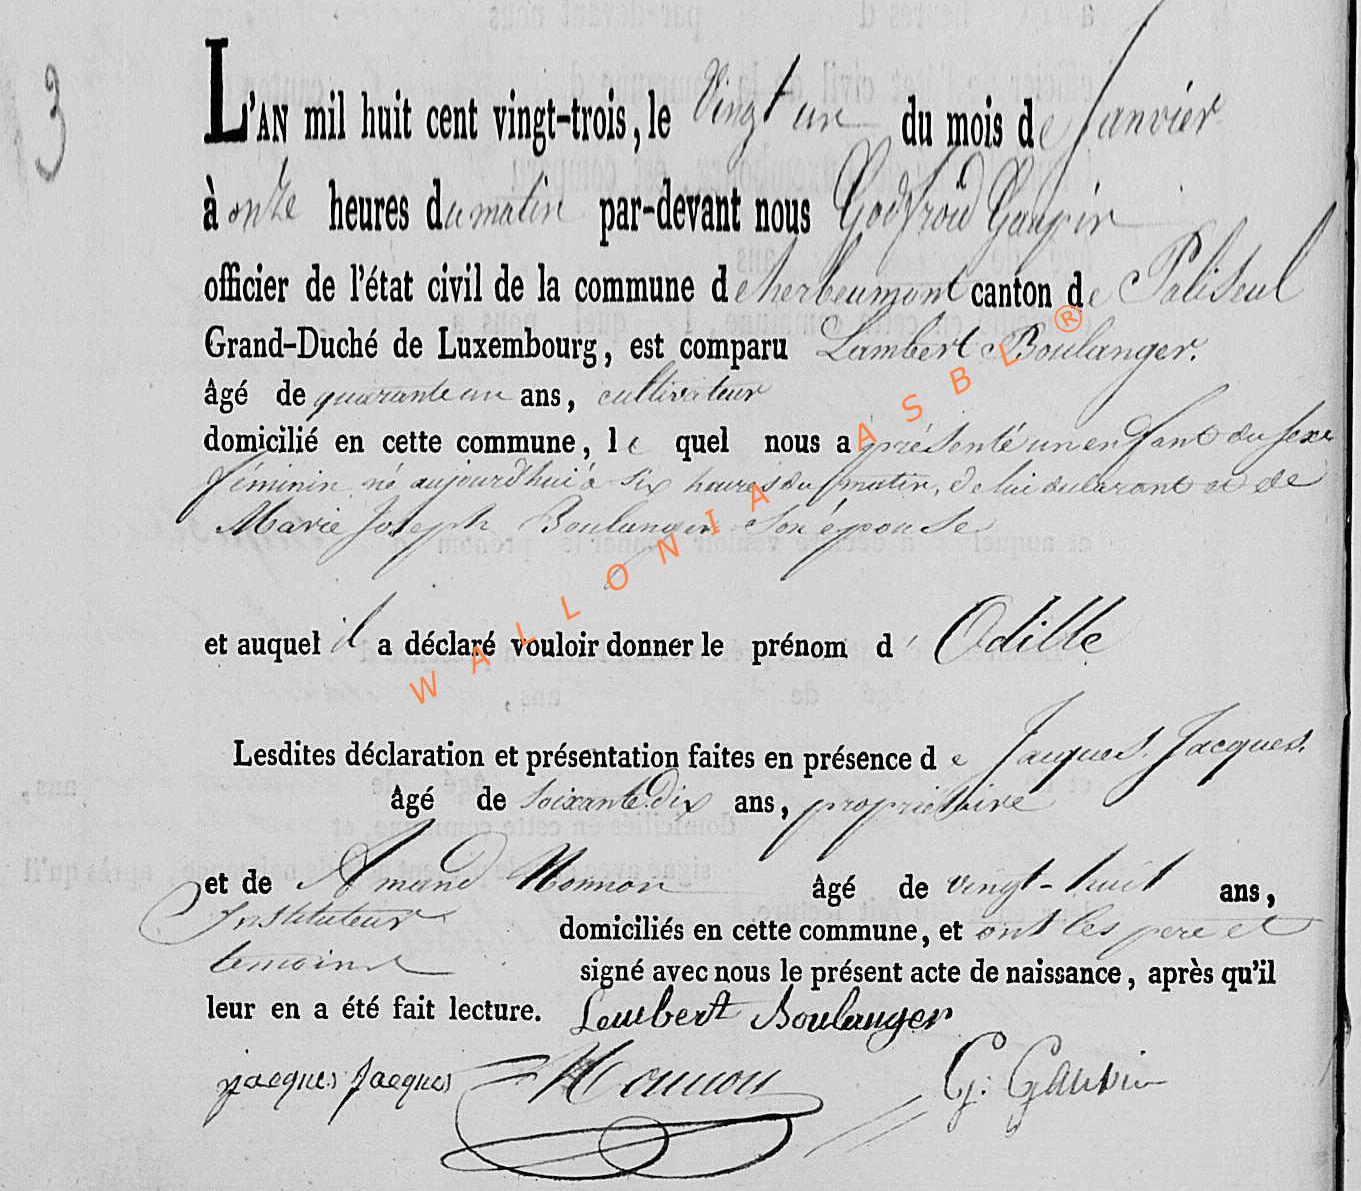 3
L'AN mil huit cent vingt-trois, le Vingt un du mois de Janvier
à onze heures du matin par-devant nous Godfroid Gaupin
officier de l'état civil de la commune d'herbeumont canton de Paliseul
Grand-Duché de Luxembourg, est comparu Lambert Boulanger.
âgé de quarante un ans, cultivateur
domicilié en cette commune, le quel nous a présenté un enfant du sexe
féminin né aujourd'hui à six heures du matin, de lui déclarant et de
Marie Joseph Boulanger son épouse
et auquel il a déclaré vouloir donner le prénom d' Odille
Lesdites déclaration et présentation faites en présence de Jacques Jacques.
âgé de soixante dix ans, propriétaire
et de Amand Monnon âgé de vingt-huit ans,
Instituteur domiciliés en cette commune, et ont les pere et
temoins signé avec nous le présent acte de naissance, après qu'il
leur en a été fait lecture. Lambert Boulanger
jacques jacques Monnon G: Gaupin
WALLONIA ASBL ®